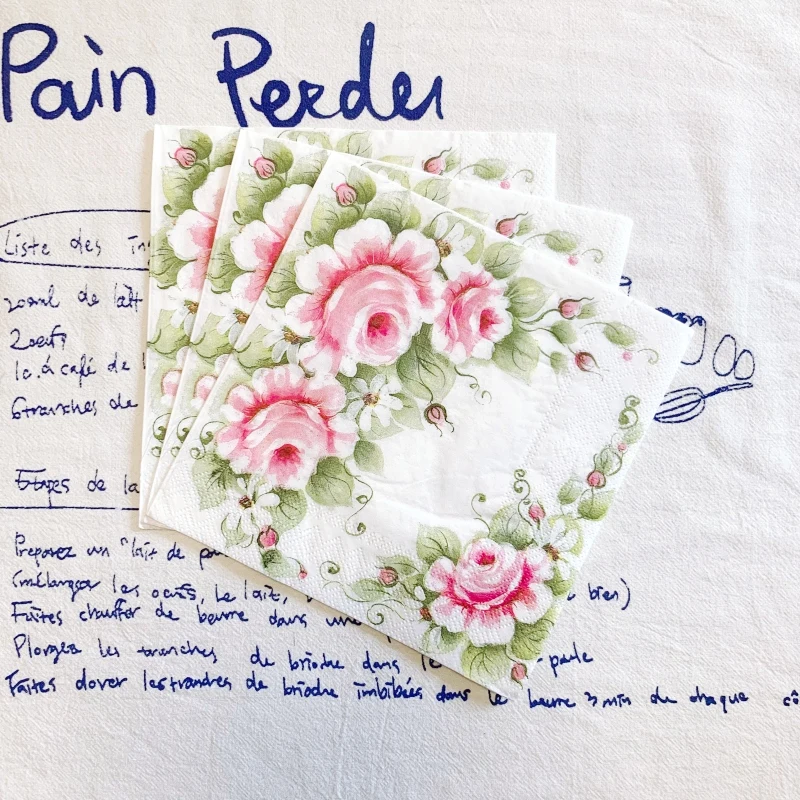 Pain Perdu
Liste des in
200ml de lait
2oeufs
1c.à café de
6tranches de
Etapes de la
Preparez un "lait de pou
(mélangez les oeufs, le lait, bien)
Faites chauffer de beurre dans une
Plongez les tranches de brioche dans le -poule
Faites dorer les tranches de brioche imbibées dans le beurre 3 min de chaque cô